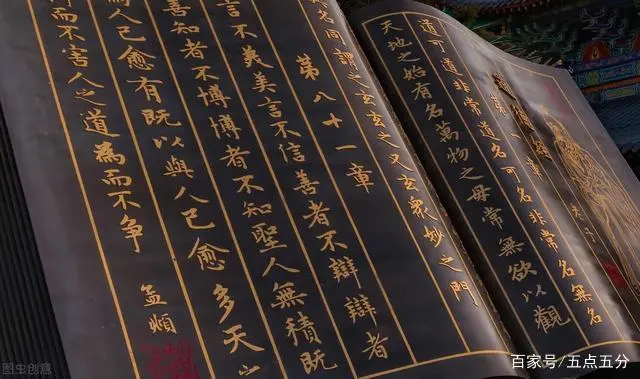 第一章
道可道非常道名可名非常名無名
天地之始有名萬物之母常無欲以觀
名同謂之玄玄之又玄衆妙之門
第八十一章
言不美美言不信善者不辯辯者
善知者不博博者不知聖人無積既
為人己愈有既以與人己愈多天之
而不害人之道為而不争
孟順
图虫创意
百家号/五点五分